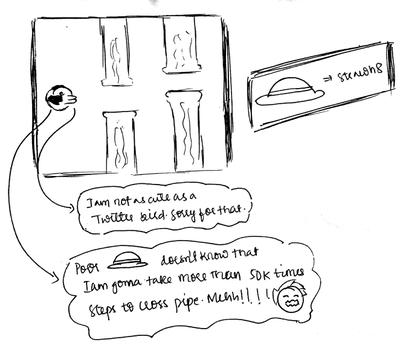 I am not as cute as a
Twitter bird. sorry for that.
Poor doesn't know that
I am gonna take more than 50K times
steps to cross pipe. Muhh!!!!